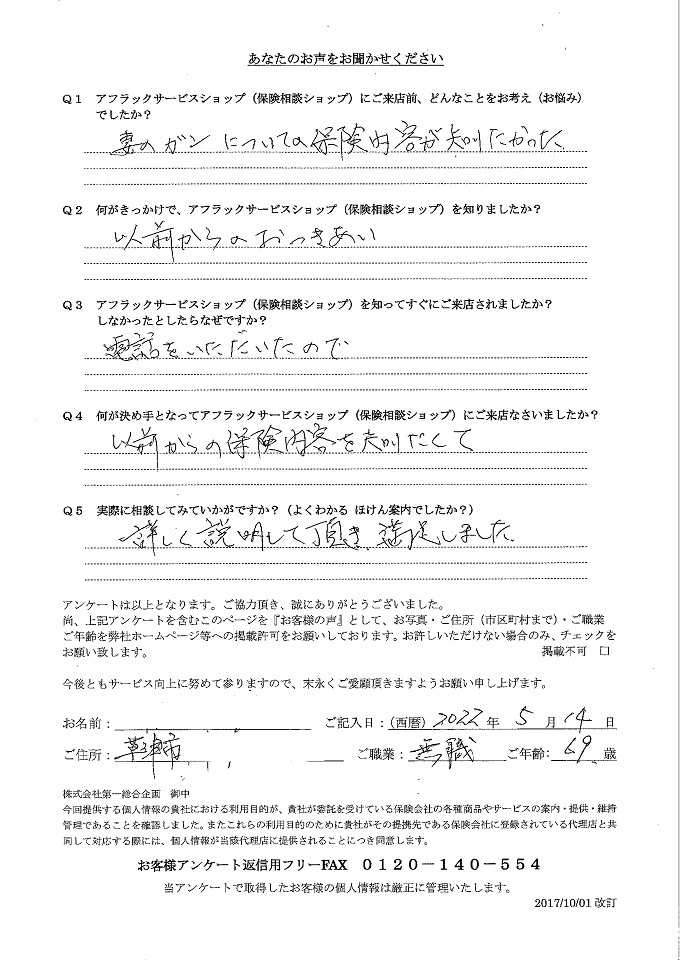 あなたのお声をお聞かせください
Q1 アフラックサービスショップ（保険相談ショップ）にご来店前、どんなことをお考え（お悩み）
でしたか？
妻のガンについての保険内容が知りたかった
Q2 何がきっかけで、アフラックサービスショップ（保険相談ショップ）を知りましたか？
以前からのおつきあい
Q3 アフラックサービスショップ（保険相談ショップ）を知ってすぐにご来店されましたか？
しなかったとしたらなぜですか？
電話をいただいたので
Q4 何が決め手となってアフラックサービスショップ（保険相談ショップ）にご来店なさいましたか？
以前からの保険内容を知りたくて
Q5 実際に相談してみていかがですか？（よくわかる ほけん案内でしたか？）
詳しく説明して頂き、満足しました
アンケートは以上となります。ご協力頂き、誠にありがとうございました。
尚、上記アンケートを含むこのページを『お客様の声』として、お写真・ご住所（市区町村まで）・ご職業
ご年齢を弊社ホームページ等への掲載許可をお願いしております。お許しいただけない場合のみ、チェックを
お願い致します。 掲載不可 □
今後ともサービス向上に努めて参りますので、末永くご愛顧頂きますようお願い申し上げます。
お名前： ご記入日：（西暦）2022 年 5 月 14 日
ご住所：草津市 ご職業：無職 ご年齢：69 歳
株式会社第一総合企画 御中
今回提供する個人情報の貴社における利用目的が、貴社が委託を受けている保険会社の各種商品やサービスの案内・提供・維持
管理であることを確認しました。またこれらの利用目的のために貴社がその提携先である保険会社に登録されている代理店と共
同して対応する際には、個人情報が当該代理店に提供されることにつき同意します。
お客様アンケート返信用フリーFAX 0120－140－554
当アンケートで取得したお客様の個人情報は厳正に管理いたします。
2017/10/01 改訂